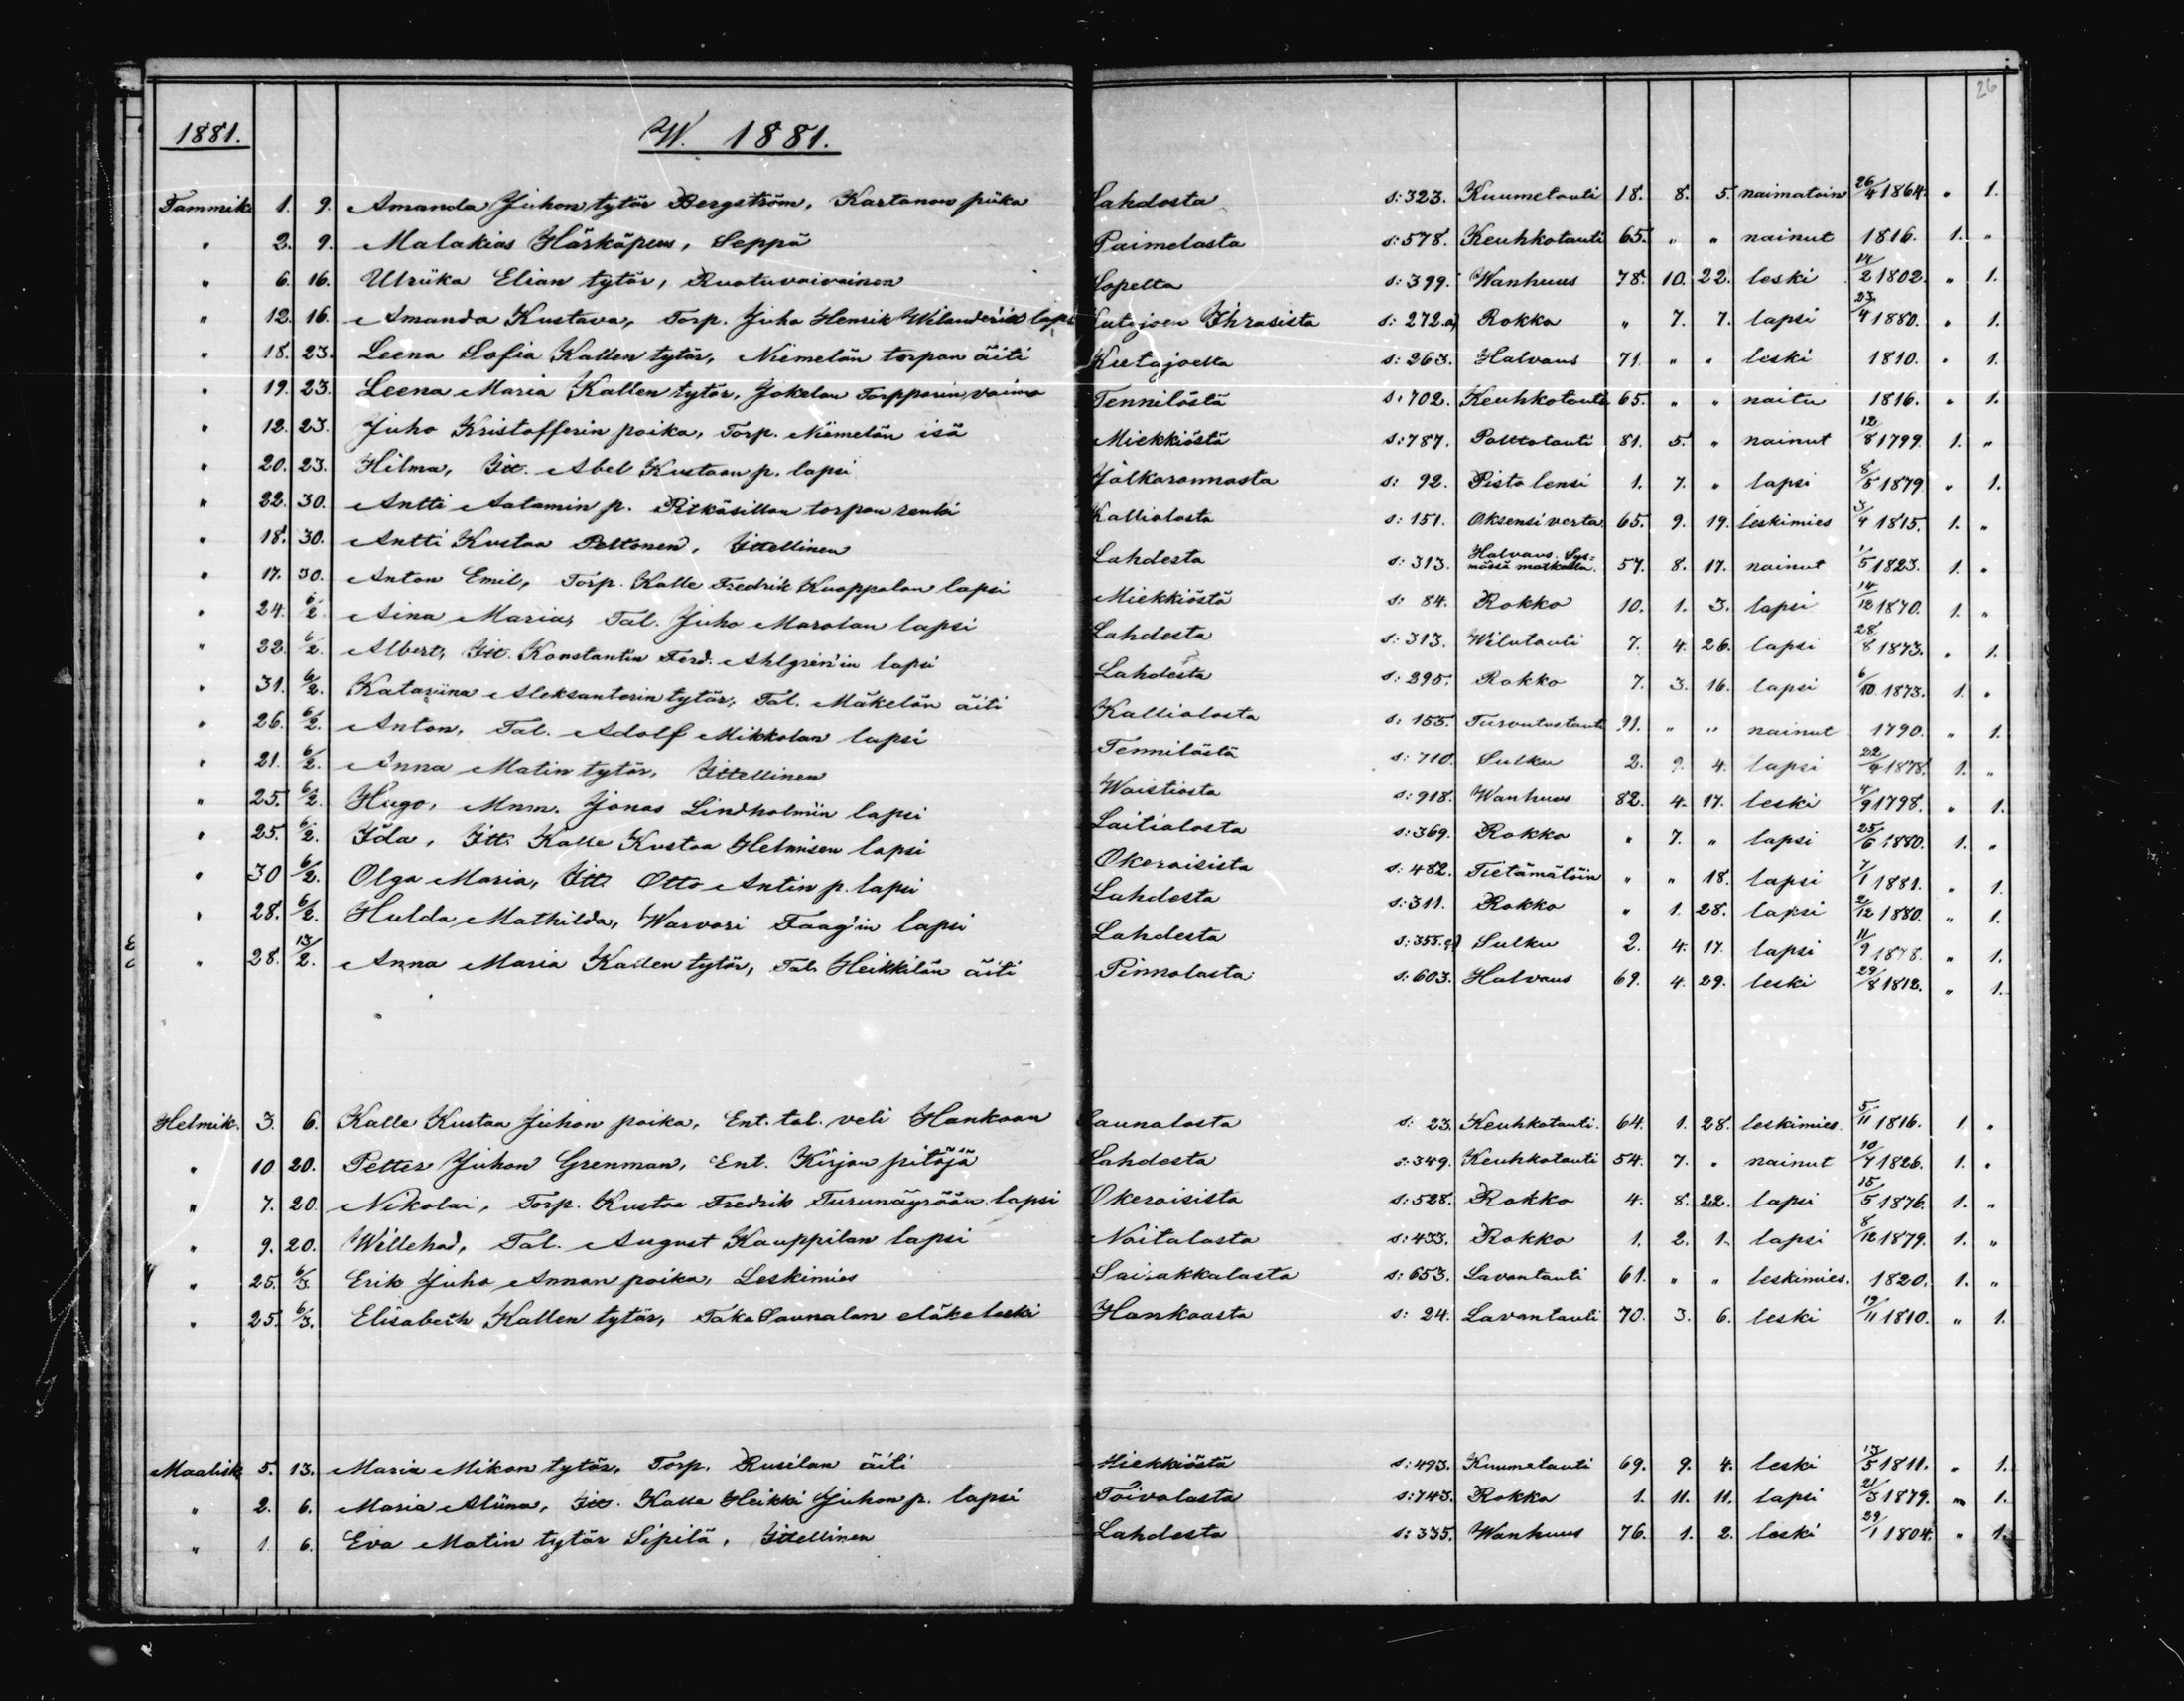 26
1881. W. 1881.
Tammik. 1. 9. Amanda Juhon tytär Bergström, Kartanon piika Lahdosta s: 323. Kuumetauti 18. 8. 5. naimatoin 26/4 1864. " 1.
" 2. 9. Malakias Härkäpeus, Seppä Paimelasta s: 578. Keuhkotauti 65. " " nainut 1816. 1. "
" 6. 16. Ulriika Elian tytär, Ruotuvaivainen Sopelta s: 399. Wanhuus 78. 10. 22. leski 14/2 1802. " 1.
" 12. 16. Amanda Kustava, Torp. Juho Henrik Wilander'in lapsi Kutajoen Ihrasista s: 272.a) Rokko " 7. 7. lapsi 23/4 1880. " 1.
" 18. 23. Leena Sofia Kallen tytär, Niemelän torpan äiti Kutajoelta s: 263. Halvaus 71. " " leski 1810. " 1.
" 19. 23. Leena Maria Kallen tytär, Jokelan Torpparin vaimo Tennilästä s: 702. Keuhkotauti 65. " " naitu 1816. " 1.
" 12. 23. Juho Kristofferin poika, Torp. Niemelän isä Miekkiöstä s: 787. Polttotauti 81. 5. " nainut 12/8 1799. 1. "
" 20. 23. Hilma, Itt. Abel Kustaan p. lapsi Jalkarannasta s: 92. Pisto lensi 1. 7. " lapsi 8/5 1879 " 1.
" 22. 30. Antti Aatamin p. Pitkäsillan torpan renki Kalliolasta s: 151. Oksensi verta 65. 9. 19. leskimies 3/4 1815. 1. "
" 18. 30. Antti Kustaa Peltonen, Ittellinen Lahdesta s: 313. Halvaus Sys=mässä matkalla. 57. 8. 17. nainut 1/5 1823. 1. "
" 17. 30. Anton Emil, Torp. Kalle Fredrik Kuoppalan lapsi Miekkiöstä s: 84. Rokko 10. 1. 3. lapsi 14/12 1870. 1. "
" 24. 6/2. Aina Maria, Tal. Juho Marolan lapsi Lahdesta s: 313. Wilutauti 7. 4. 26. lapsi 28/8 1873. " 1.
" 22. 6/2. Albert, Itt. Konstantin Ferd. Ahlgren'in lapsi Lahdesta s: 295. Rokko 7. 3. 16. lapsi 6/10 1873. 1. "
" 31. 6/2. Katariina Aleksanterin tytär, Tal. Mäkelän äiti Kalliolasta s: 155. Turvotustauti 91. " " nainut 1790. " 1.
" 26. 6/2. Anton, Tal. Adolf Mikkolan lapsi Tennilästä s: 710. Sulku 2. 9. 4. lapsi 22/4 1878. 1. "
" 21. 6/2. Anna Matin tytär, Ittellinen Waistiosta s: 918. Wanhuus 82. 4. 17. leski 4/9 1798. " 1.
" 25. 6/2. Hugo, Mnm. Jonas Lindholmin lapsi Laitialasta s: 369. Rokko " 7. " lapsi 25/6 1880. 1. "
" 25. 6/2. Ida, Itt. Kalle Kustaa Helmisen lapsi Okeroisista s: 482. Tietämätöin " " 18. lapsi 7/1 1881. " 1.
" 30 6/2. Olga Maria, Itt. Otto Antin p. lapsi Lahdesta s: 311. Rokko " 1. 28. lapsi 2/12 1880. " 1.
" 28. 6/2. Hulda Mathilda, Warvari Faag'in lapsi Lahdesta s: 355.a) Sulku 2. 4. 17. lapsi 11/9 1878. " 1.
" 28. 13/2. Anna Maria Kallen tytär, Tal. Heikkilän äiti Pennalasta s: 603. Halvaus 69. 4. 29. leski 29/8 1812. " 1.
Helmik. 3. 6. Kalle Kustaa Juhon poika, Ent. tal. veli Hankaan Saunalasta s: 23. Keuhkotauti. 64. 1. 28. leskimies. 5/11 1816. 1. "
" 10 20. Petter Juhon Grenman, Ent. Kirjan pitäjä Lahdesta s: 349. Keuhkotauti 54. 7. " nainut 10/7 1826. 1. "
" 7. 20. Nikolai, Torp. Kustaa Fredrik Turunäyrään lapsi Okeroisista s: 528. Rokko 4. 8. 22. lapsi 15/5 1876. 1. "
" 9. 20. Willehad, Tal. August Kauppilan lapsi Noitalasta s: 433. Rokko 1. 2. 1. lapsi 8/12 1879. 1. "
" 25. 6/3. Erik Juho Annan poika, Leskimies Sairakkalasta s: 653. Lavantauti 61. " " leskimies. 1820. 1. "
" 25. 6/3. Elisabeth Kallen tytär, Taka Saunalan eläkeleski Hankaasta s: 24. Lavantauti 70. 3. 6. leski 19/11 1810. " 1.
Maalisk. 5. 13. Maria Mikon tytär, Torp. Rusilan äiti Miekkiöstä s: 493. Kuumetauti 69. 9. 4. leski 13/5 1811. " 1.
" 2. 6. Maria Aliina, Itt. Kalle Heikki Juhon p. lapsi Toivolasta s: 743. Rokko 1. 11. 11. lapsi 21/3 1879. " 1.
" 1. 6. Eva Matin tytär Sipilä, Ittellinen Lahdesta s: 335. Wanhuus 76. 1. 2. leski 29/1 1804. " 1.